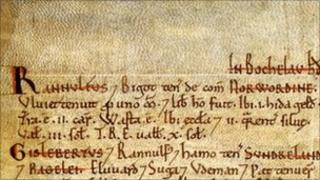 In Bochelau hd
Rannulfus 7 Bigot ten de com Norwordine.
Vluiet tenuit p uno m̄. 7 lib ho fuit. Ibi. i. hida geld.
Tra. ē. ii. car. Wasta. ē. Ibi eccla 7 ii.
Val. iii. sol. T.R.E. ualb. x. sol.
Gislebertus 7 Rannulf 7 hamo ten Sundreland
7 Bagelei. Eluuard 7 Suga 7 Vdeman 7 Pat tenuer